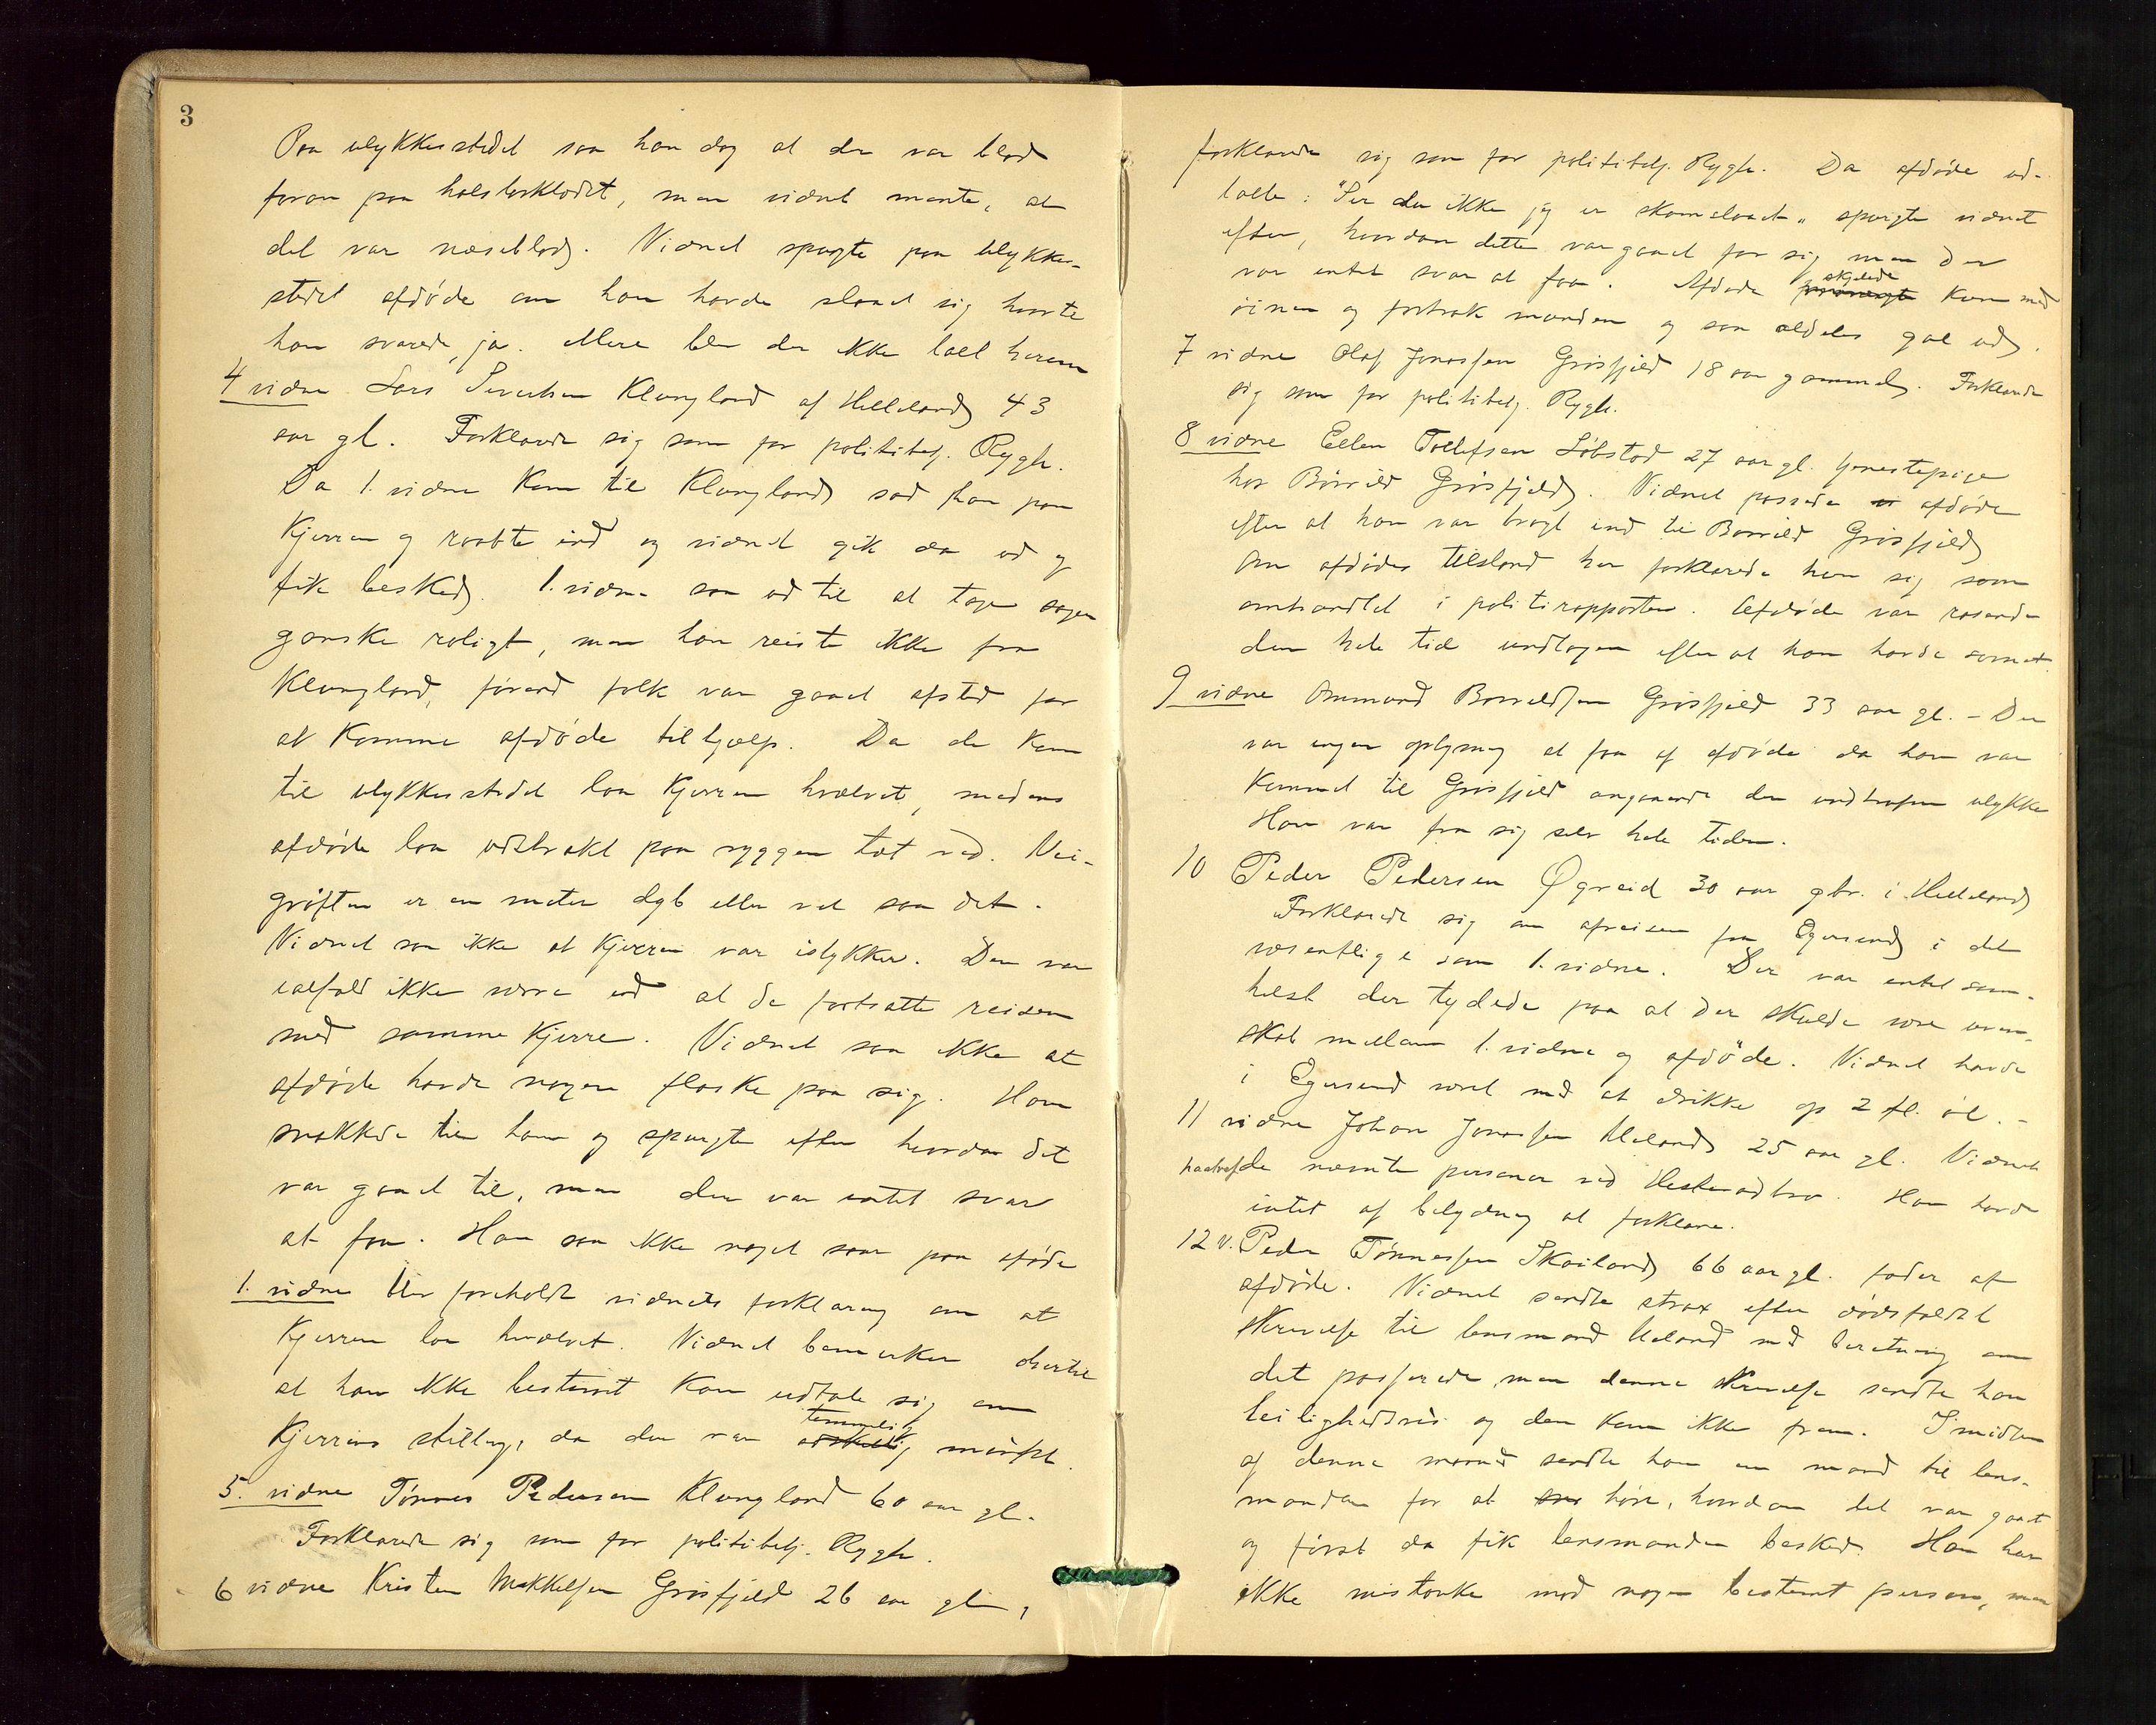 3
Paa ulykkesstedet saa han dog at der var blod
foran paa halstørklædet, men vidnet mente, at
det var næseblod. Vidnet spurgte paa ulykkes-
stedet afdøde om han havde slaaet sig hvorte
han svarede ja. Mere blev der ikke talt herom
4 vidne Lars Sivertsen Klungland af Helleland 43
aar gl. Forklarede sig som for politibetj. Rygh.
Da 1. vidne kom til Klungland sad han paa
kjerren og raabte ind og vidnet gik da ud og
fik besked. 1. vidne saa ud til at tage sagen
ganske roligt, men han reiste ikke fra
Klungland, førend folk var gaaet afsted for
at komme afdøde til hjælp. Da de kom
til ulykkesstedet laa kjerren hvælvet, medens
afdøde laa udstrakt paa ryggen tæt ved. Vei-
grøften er en meter dyb eller vel saa det.
Vidnet saa ikke at kjerren var istykker. Den var
ialfald ikke værre end at de fortsatte reisen
med samme kjerre. Vidnet saa ikke at
afdøde havde nogen flaske paa sig. Han
snakkede til ham og spurgte efter hvordan det
var gaaet til, men der var intet svar
at faa. Han saa ikke noget saar paa afdøde
1. vidne blev foreholdt vidnets forklaring om at
kjerren laa hvælvet. Vidnet bemerker dertil
at han ikke bestemt kan udtale sig om
kjerrens stilling, da der var temmelig mørkt.
5. vidne Tønnes Pedersen Klungland 60 aar gl.
Forklarede sig som for politibetj. Rygh.
6 vidne Kristen Mikkelsen Grøsfjeld 26 aar gl.,
forklarede sig som for politibetj. Rygh. Da afdøde ud-
talte: "Ser du ikke jeg er skamslaaet" spurgte vidnet
efter, hvordan dette var gaaet for sig men der
var intet svar at faa. Afdøde skjelede kun med
øinene og fortrak munden og saa aldeles gal ud.
7 vidne Olaf Jonassen Grøsfjeld 18 aar gammel. Forklarede
sig som for politibetj. Rygh.
8 vidne Ellen Tollefsen Løbstad 27 aar gl. tjenestepige
hos Børrild Grøsfjeld. Vidnet passede afdøde
efter at han var bragt ind til Børrild Grøsfjeld
Om afdødes tilstand her forklarede hun sig som
omhandlet i politirapporten. Afdøde var rasende
den hele tid undtagen efter at han havde sovnet.
9 vidne Ommund Børreldsen Grøsfjeld 33 aar gl. - Der
var ingen oplysning at faa af afdøde da han var
kommet til Grøsfjeld angaaende den indtrufne ulykke
Han var fra sig selv hele tiden.
10 Peder Pedersen Øgreid 30 aar gbr. i Helleland
Forklarede sig om afreisen fra Egersund i det
væsentlige som 1. vidne. Der var intet som-
helst der tydede paa at der skulde være uven-
skab mellem 1. vidne og afdøde. Vidnet havde
i Egersund været med at drikke op 2 fl. øl. -
11 vidne Johan Jonassen Ueland 25 aar gl. Vidnet
paatraf de nævnte personer ved Hestvadbro. Han havde
intet af betydning at forklare.
12 v. Peder Tønnessen Skailand 66 aar gl. fader af
afdøde. Vidnet sendte strax efter dødsfaldet
skrivelse til lensmand Ueland med beretning om
det passerede, men denne skrivelse sendte han
leilighedsvis og den kom ikke frem. I midten
af denne maaned sendte han en mand til lens-
manden for at høre, hvordan det var gaaet
og først da fik lensmanden besked. Han har
ikke mistanke mod nogen bestemt person, men